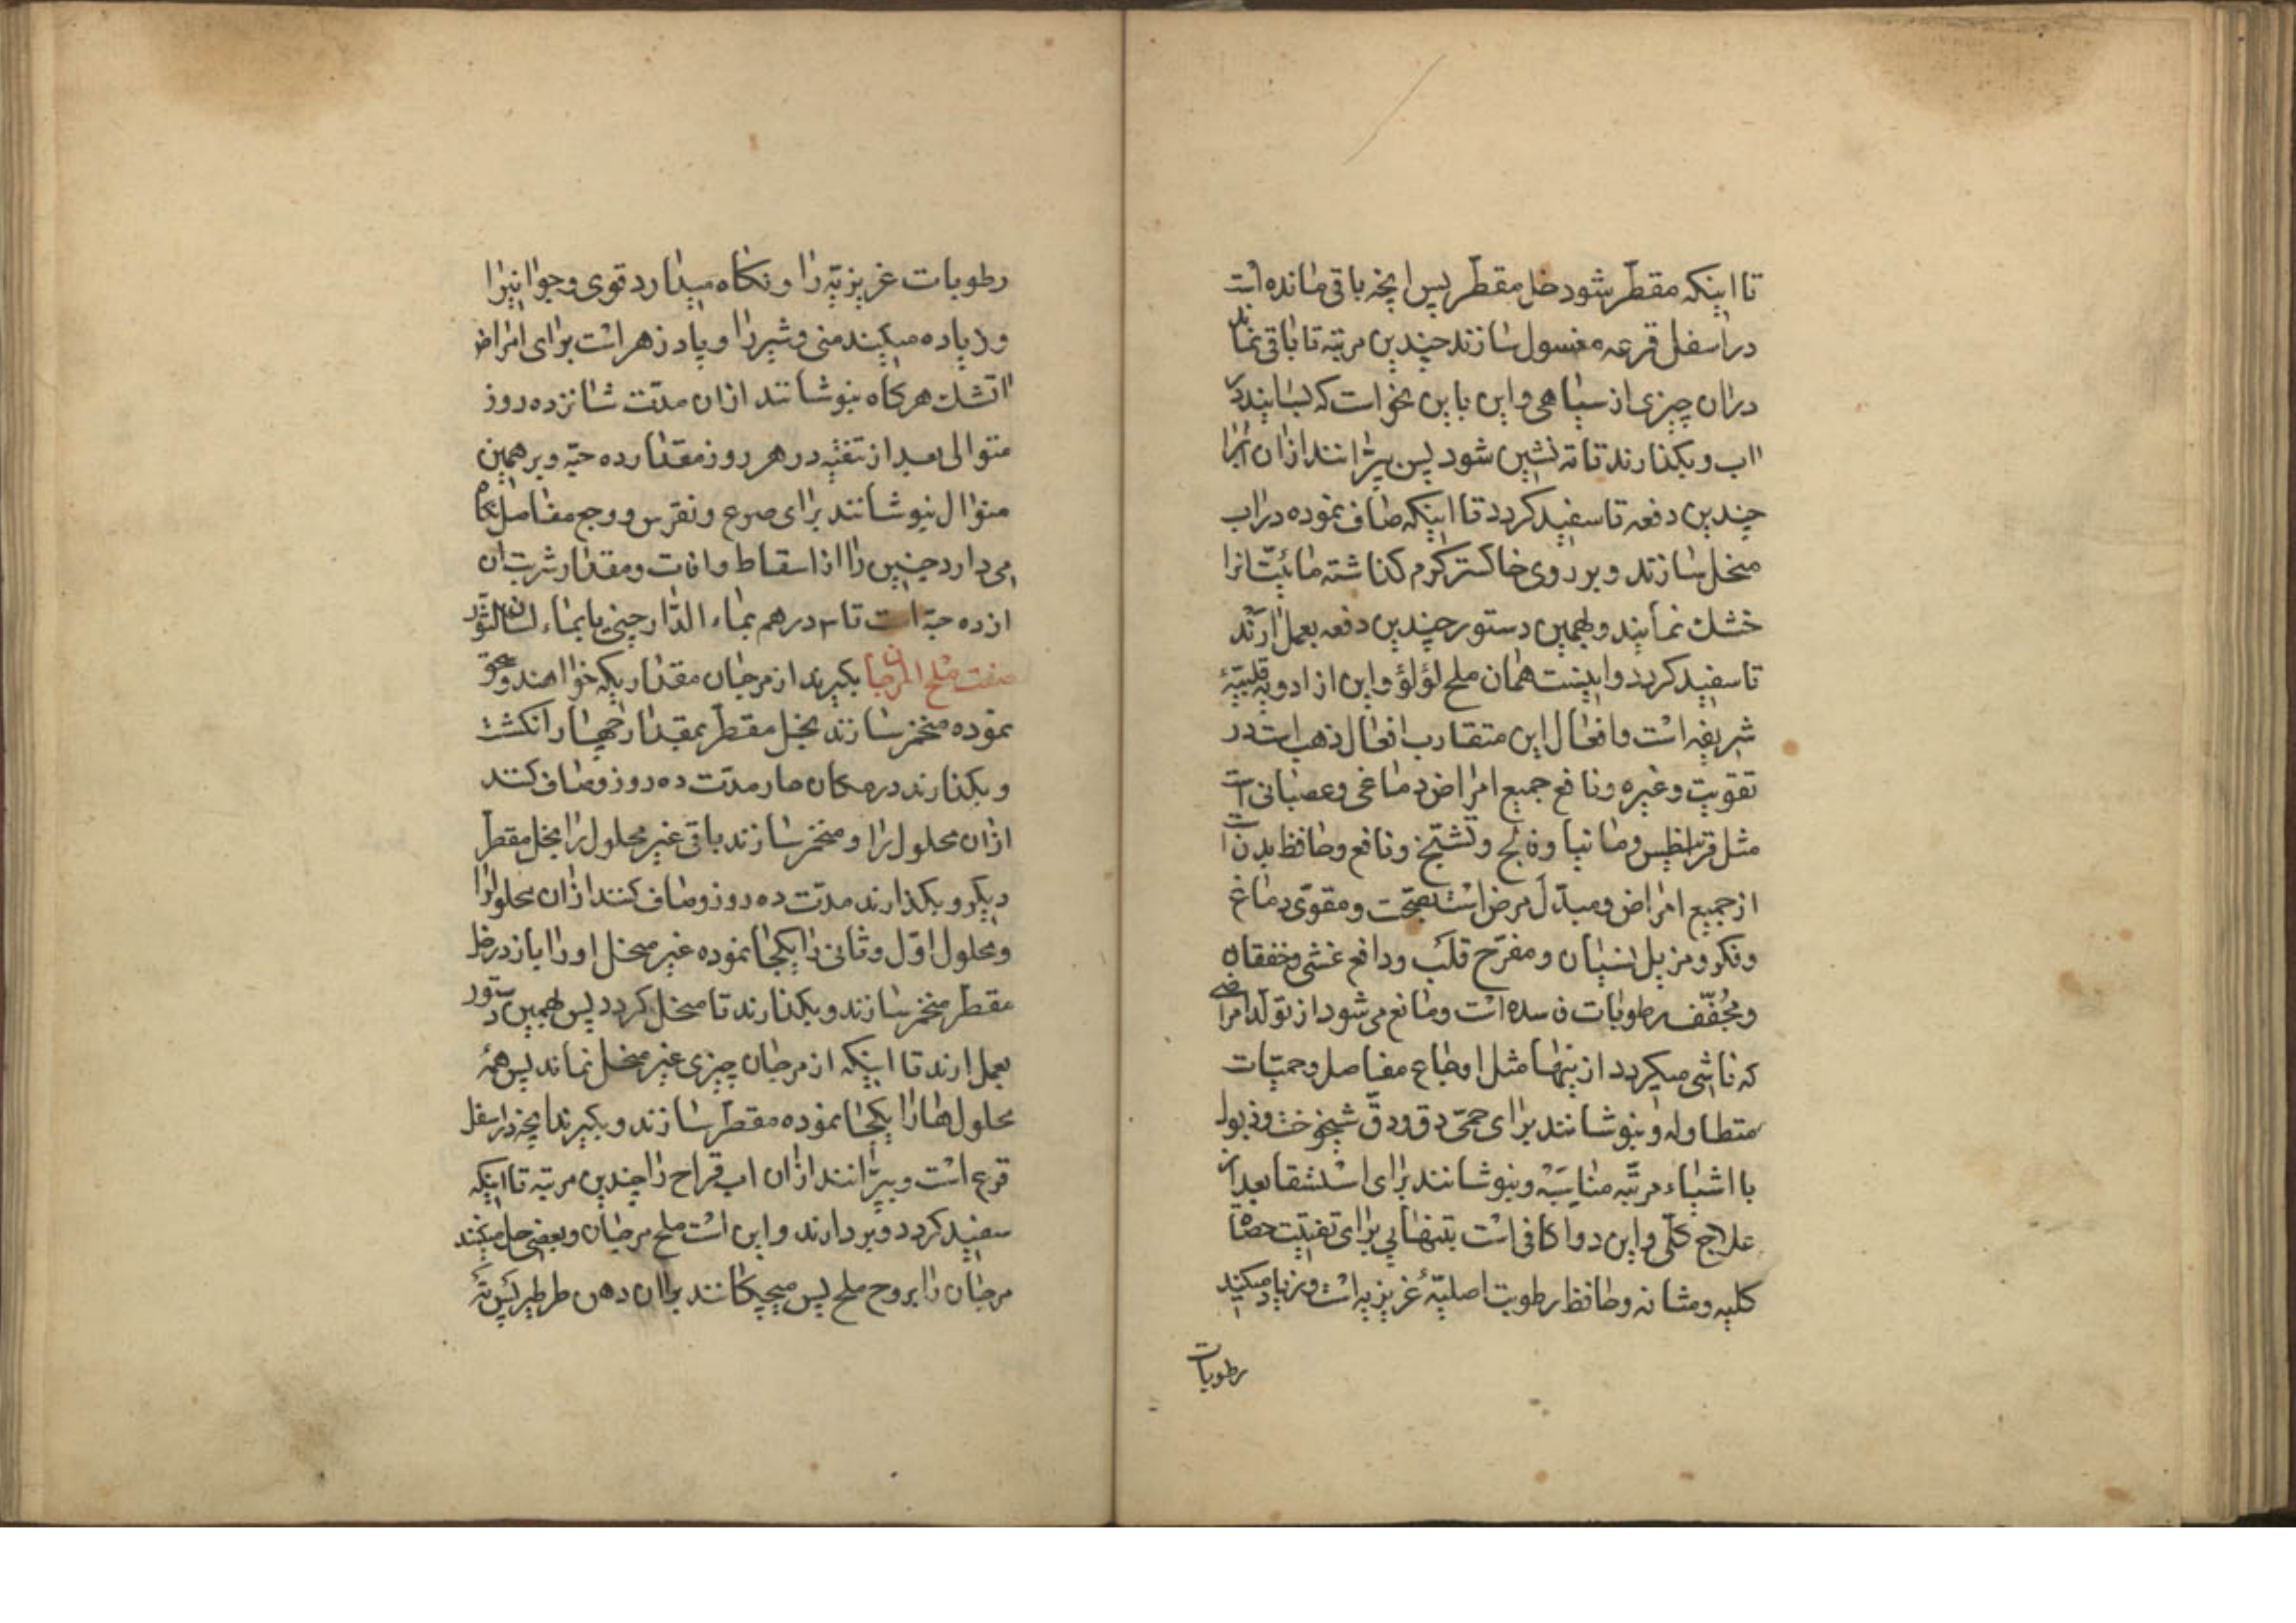 تا اینکه مقطّر شود خل مقطّر پس انچه باقی مانده است
در اسفل قرعه مغسول سازند چندین مرتبه تا باقی نماند
دران چیزی از سیاهی و این باین نحو است که بسایند در
اب و بکذارند تا ته نشین شود پس بپزانند ازان ابرا
چندین دفعه تا سفید کردد تا اینکه صاف نموده در اب
منحل سازند و بر روی خاکستر کرم کذاشته مائیّت انرا
خشک نمایند و بهمین دستور چندین دفعه بعمل ارند
تا سفید کردد و اینست همان ملح لؤلؤ و این از ادویه قلبیّهٔ
شریفه است و افعال این متقارب افعال ذهب است در
تقویت و غیره و نافع جمیع امراض دماغی و عصبانی است
مثل قرانیطس و مانیا و فالج و تشنّج و نافع و حافظ بدن است
از جمیع امراض و مبدّل مرض است بصحّت و مقوّی دماغ
و فکر و مزیل نسیان و مفرّح قلب و دافع غشی و خفقان
و مجُفّف رطوبات فاسده است و مانع می شود از تولّد امراضی
که ناشی میکردد از ینها مثل اوجاع مفاصل و حمیّات
متطاوله و بنوشانند برای حمّی دق و دقّ شیخوخت و ذبول
با اشیاء مرتّبه مناسبه و بنوشانند برای استسقا بعد از
علاج کلّی و این دوا کافی است بتنهایی برای تفتیت حصاة
کلیه و مثانه و حافظ رطوبت اصلیّهٔ غریزیه است و زیاد میکند
رطوبات
رطوبات غریزیّه را و نکاه میدارد قوی و جوانیرا
و زیاده میکیند منی و شیر را و پاد زهر است برای امراض
اتشک هر کاه بنوشانند ازان مدّت شانزده روز
متوالی بعد از تنقیه در هر روز مقدار ده حبّه و بر همین
منوال بنوشانند برای صرع و نقرس و وجع مفاصل نکاه
می دارد جنین را از اسقاط و افات و مقدار شربت ان
از ده حبّه است تا ۳ درهم بماء الدّارچینی یا بماء لسان الثّور
صفت ملح المرجان بکیرند از مرجان مقداریکه خواهند و سحق
نموده منخمر سازند بخل مقطّر بمقدار چهار انکشت
و بکذارند در مکان حار مدّت ده روز و صاف کنند
ازان محلول را و منخمر سازند باقی غیر محلول را بخل مقطّر
دیکر و بکذارند مدّت ده روز و صاف کنند ازان محلولرا
و محلول اوّل و ثانی را یکجا نموده غیر منحل او را باز در خل
مقطّر منخمر سازند و بکذارند تا منحل کردد پس بهمین دستور
بعمل ارند تا اینکه از مرجان چیزی غیر منحل نماند پس همهٔ
محلول هارا یکجا نموده مقطّر سازند و بکیرند انچه در اسفل
قرع است و بپزانند ازان اب قراح را چندین مرتبه تا اینکه
سفید کردد و بر دارند و این است ملح مرجان و بعضی حل میکنند
مرجان را بروح ملح پس میچکانند بران دهن طرطیر پس ته